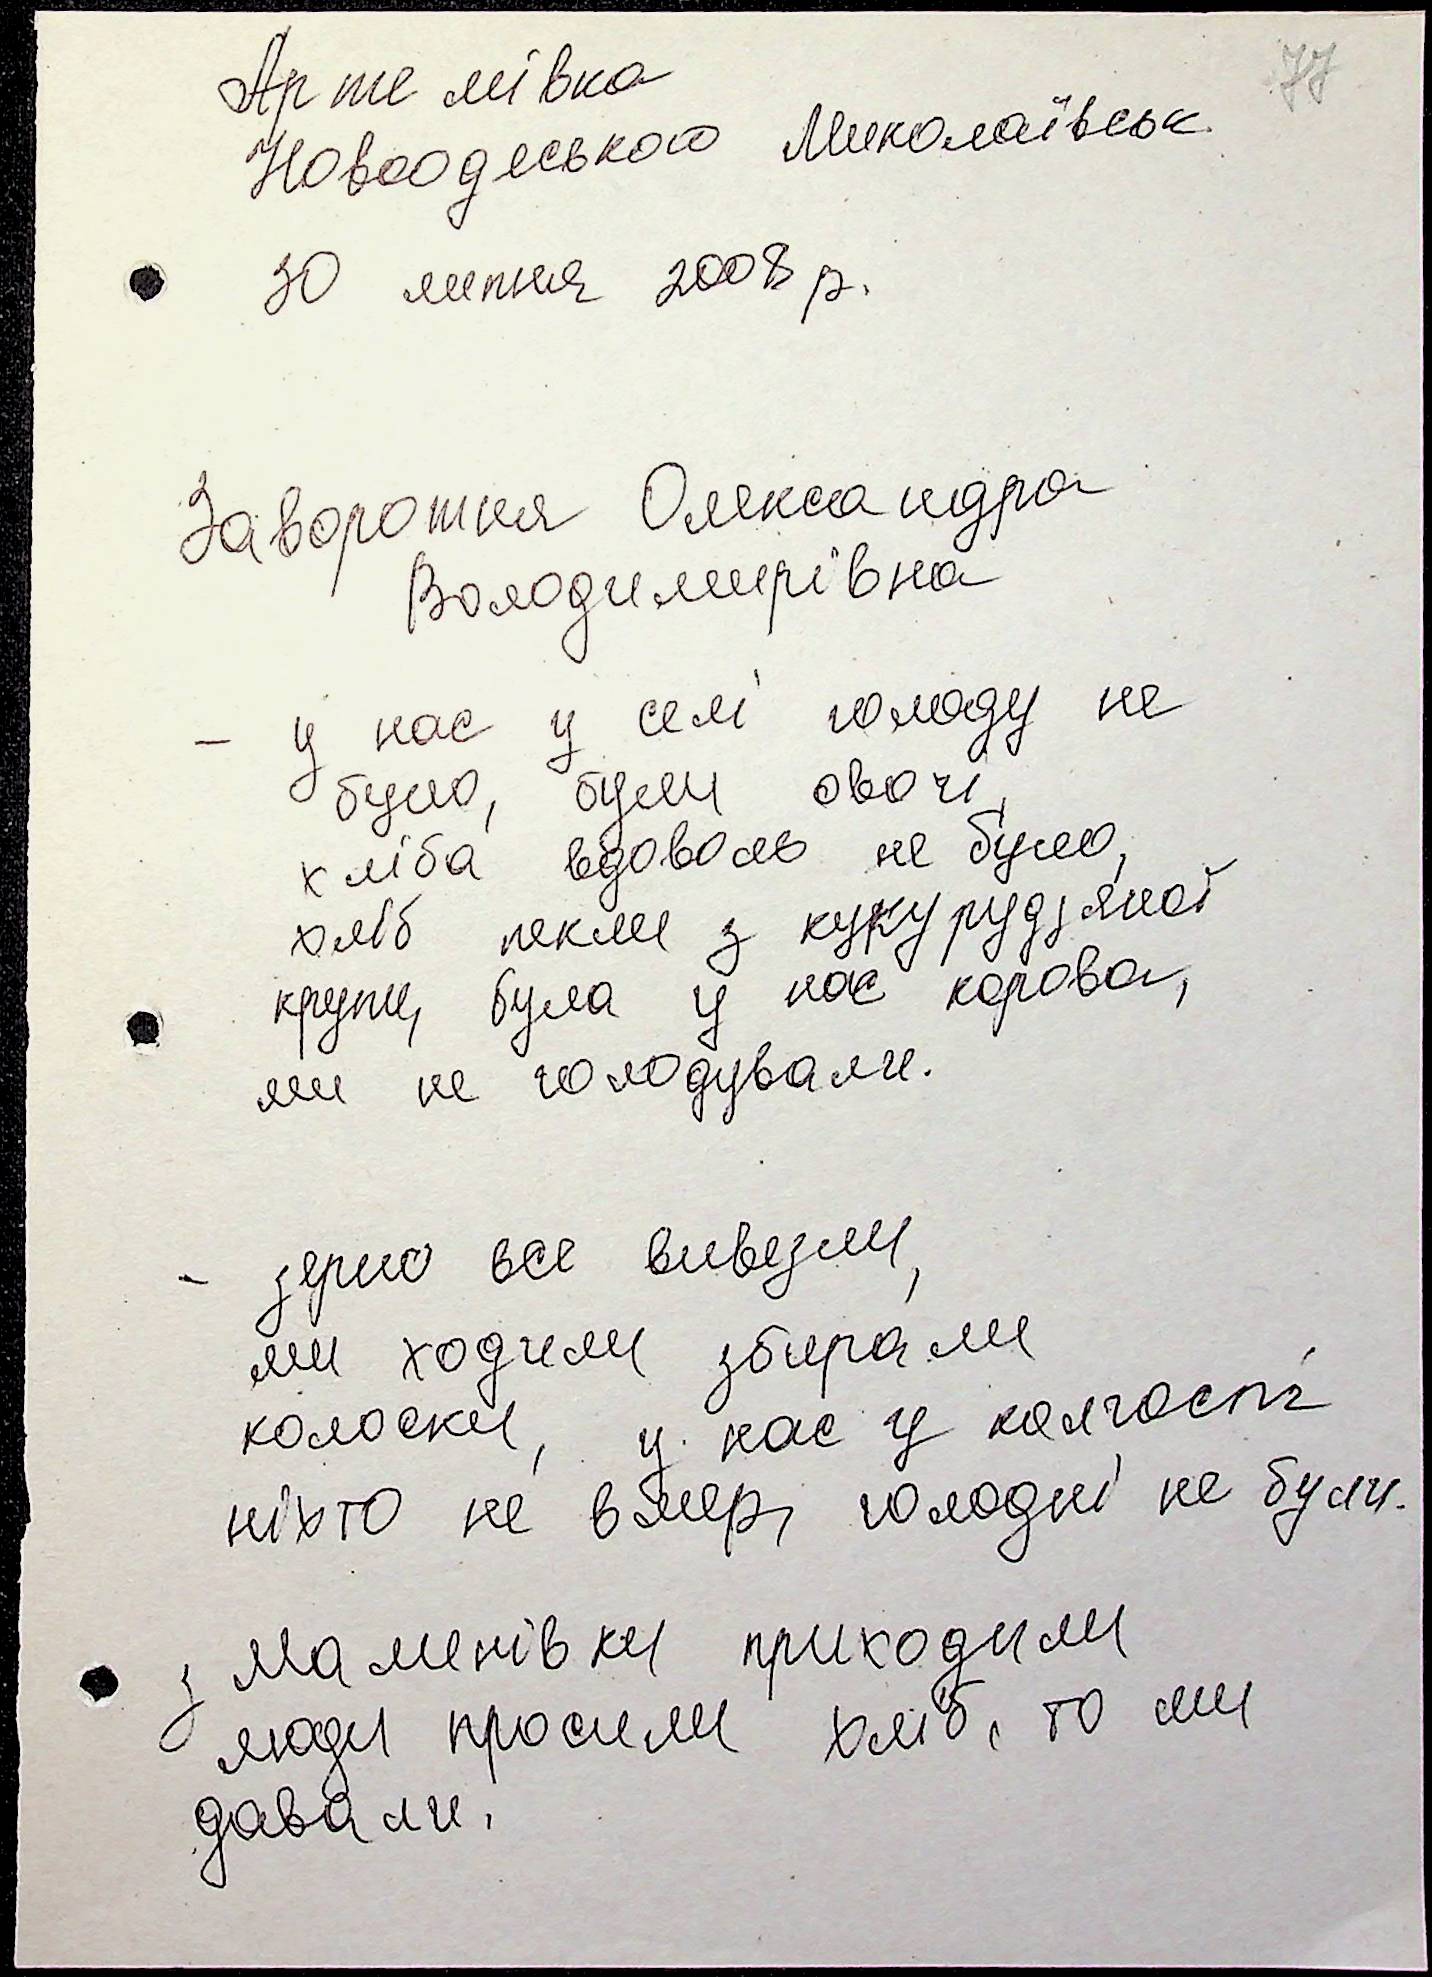 77
Артемівка
Новоодеського Миколаївськ.
30 липня 2008 р.
Заворотня Олександра
Володимирівна
- у нас у селі голоду не
було, були овочі,
хліба вдоволь не було,
хліб пекли з кукурудзяної
крупи, була у нас корова,
ми не голодували.
- зерно все вивезли,
ми ходили збирали
колоски, у нас у колгоспі
ніхто не вмер, голодні не були.
з Маменівки приходили
люди просили хліб, то ми
давали.